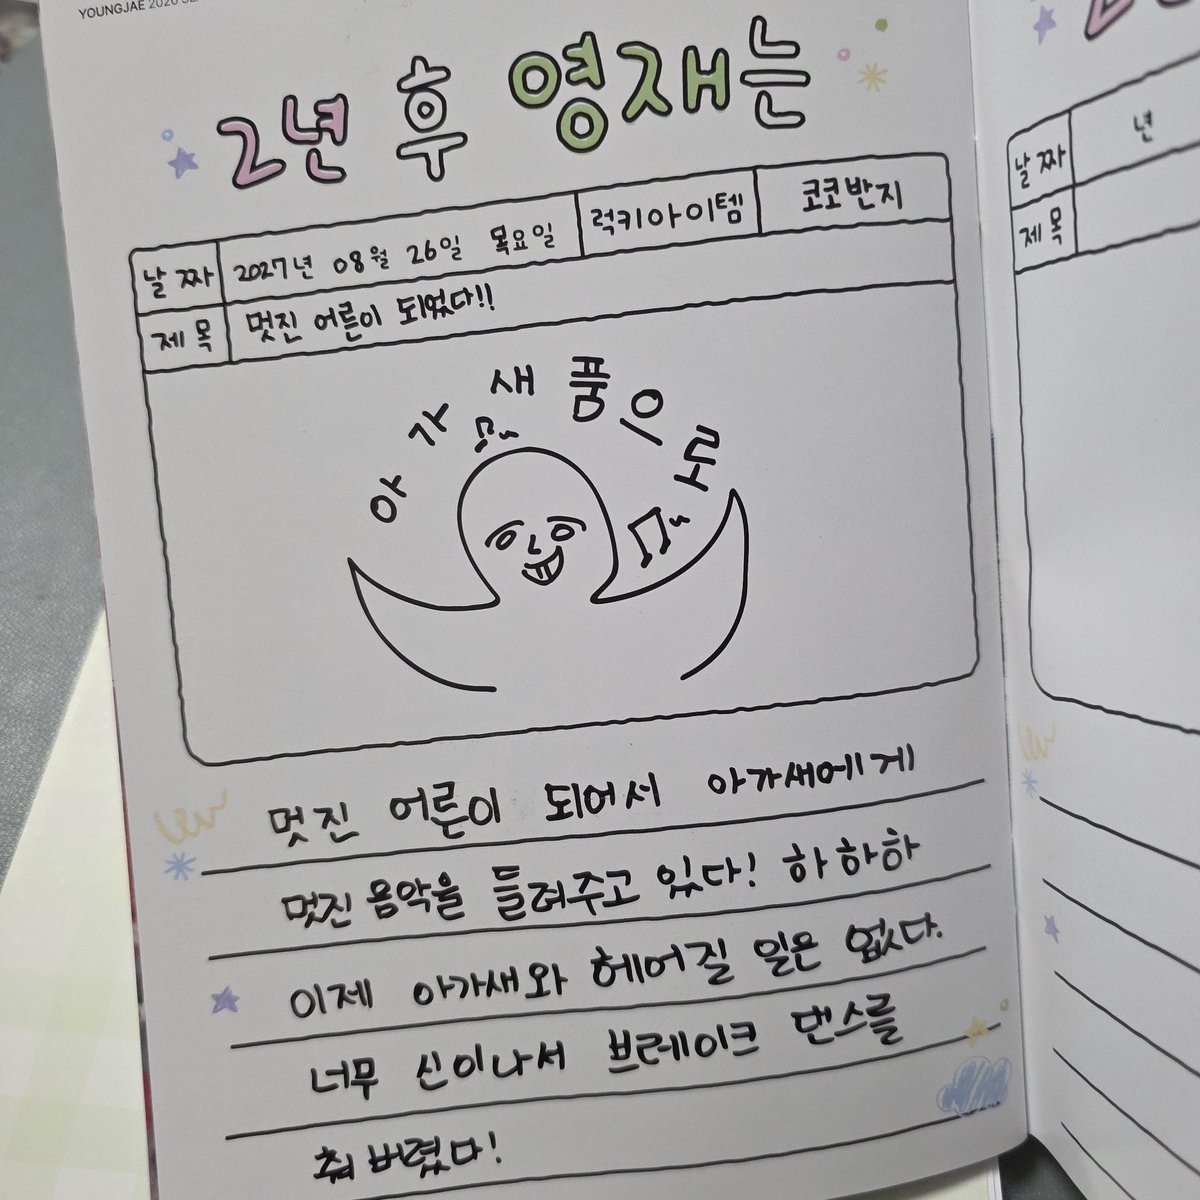 YOUNGJAE 2026
2년 후 영재는
날짜 2027년 08월 26일 목요일 럭키아이템 코코반지
제목 멋진 어른이 되었다!!
아가새 품으로
멋진 어른이 되어서 아가새에게
멋진 음악을 들려주고 있다! 하하하
이제 아가새와 헤어질 일은 없다.
너무 신이나서 브레이크 댄스를
춰 버렸다!
날짜 년
제목